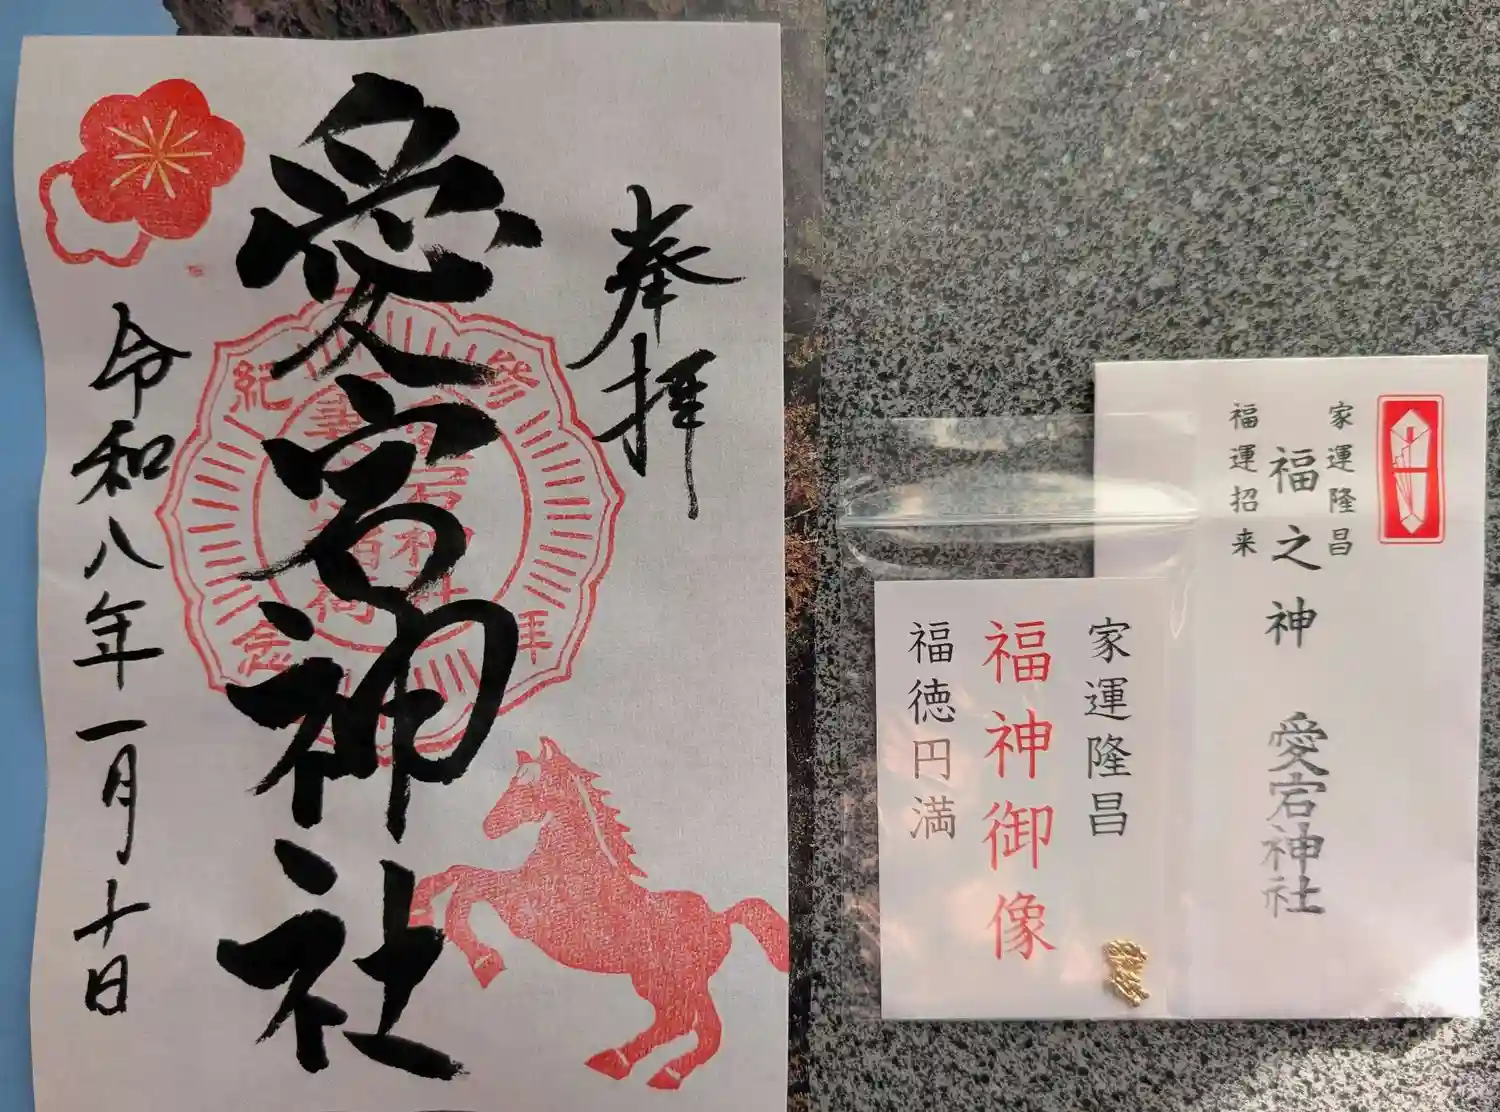 奉拝
愛宕神社
令和八年一月十日
参拝
紀念
家運隆昌
福之神 愛宕神社
福運招来
家運隆昌
福神御像
福徳円満